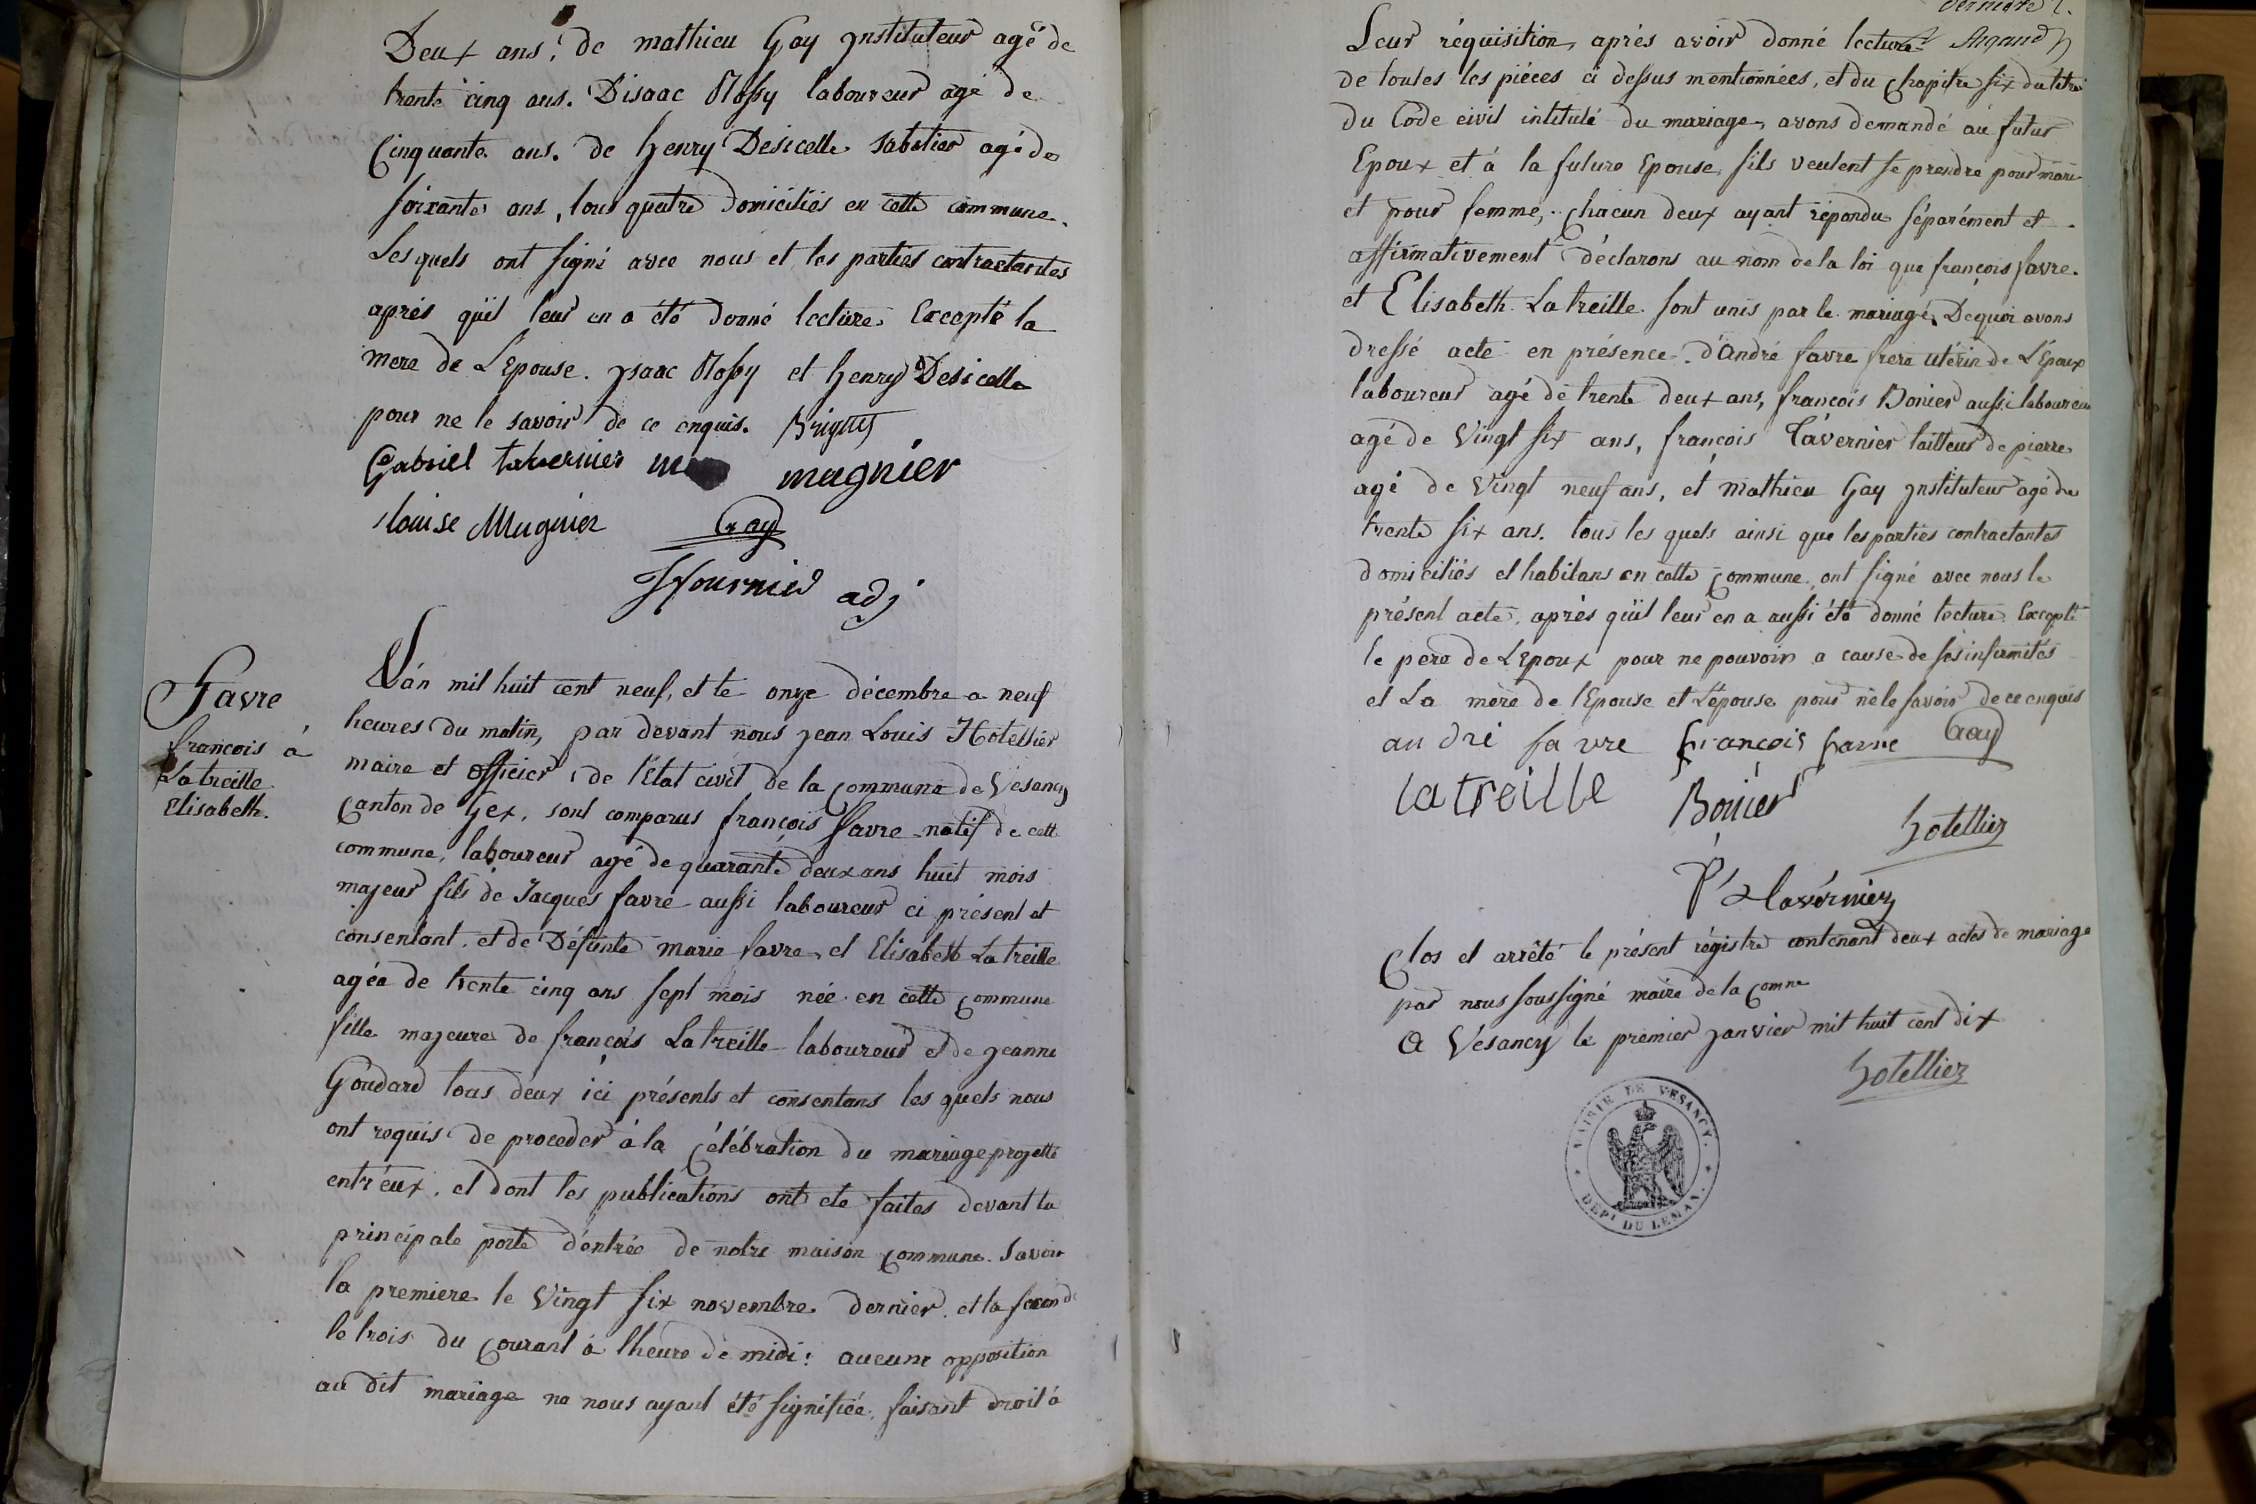 Deux ans, de mathieu Gay jnstituteur agé de
trente cinq ans. Disaac Mossy laboureur agé de
Cinquante ans. de henry Desicelle sabotier agé de
soixante ans, tous quatre domiciliés en cette commune.
Lesquels ont signé avec nous et les parties contractantes
aprés qu'il leur en a été donné lecture. Excepté la
mere de L'Epouse. jsaac Mossy et henry Desicelle
pour ne le savoir de ce enquis.
Gabriel tabernier magnier
Louise Mugnier Gay
Fournier adj
Favre
francois à
Latreille
Elisabeth.
L'án mil huit cent neuf, et le onze décembre a neuf
heures du matin, par devant nous jean Louis Hotellier
maire et officier de l'Etat civil de la commune de Vésancy
Canton de Gex, sont comparus françois favre natif de cette
commune, laboureur agé de quarante deux ans huit mois
majeur fils de Jacques favre aussi laboureur ci présent et
consentant, et de Défunte marie favre, et Elisabeth Latreille
agée de trente cinq ans sept mois née en cette commune
fille majeure de françois Latreille laboureur et de jeanne
Goudard tous deux ici présents et consentans les quels nous
ont requis de proceder á la célébration du mariage projetté
entr'eux, et dont les publications ont ete faites devant la
principale porte d'entrée de notre maison commune. Savoir
la premiere le Vingt six novembre dernier, et la seconde
le trois du courant á l'heure de midi: aucune opposition
au dit mariage ne nous ayant été signifiée, faisant droit á
Leur réquisition, aprés avoir donné lecture
de toutes les piéces ci dessus mentionnées, et du chapitre six du titre
du Code civil intitulé du mariage, avons demandé au futur
Epoux et á la future Epouse, s'ils veulent se prendre pour mari
et pour femme, chacun deux ayant répondu séparément et
affirmativement déclarons au nom de la loi que françois favre
et Elisabeth Latreille sont unis par le mariage. De quoi avons
dressé acte en présence d'andré favre frere utérin de L'Epoux
laboureur agé de trente deux ans, francois Bonier aussi laboureur
agé de Vingt six ans, françois Tavernier tailleur de pierre
agé de Vingt neuf ans, et mathieu Gay jnstituteur agé de
trente six ans. tous les quels ainsi que les parties contractantes
domiciliés et habitans en cette commune ont signé avec nous le
présent acte, aprés qu'il leur en a aussi été donné lecture Excepté
le pere de L'Epoux pour ne pouvoir a cause de ses infirmités
et La mere de l'Epouse et L'épouse pour ne le savoir de ce enquis
andré favre françois favre Gay
latreille Bonier hotellier
Clos et arrêté le présent régistre contenant deux actes de mariage
par nous soussigné maire de la comne
a Vésancy le premier janvier mil huit cent dix
hotellier
MAIRIE DE VESANCY.
DEPT DU LEMAN.